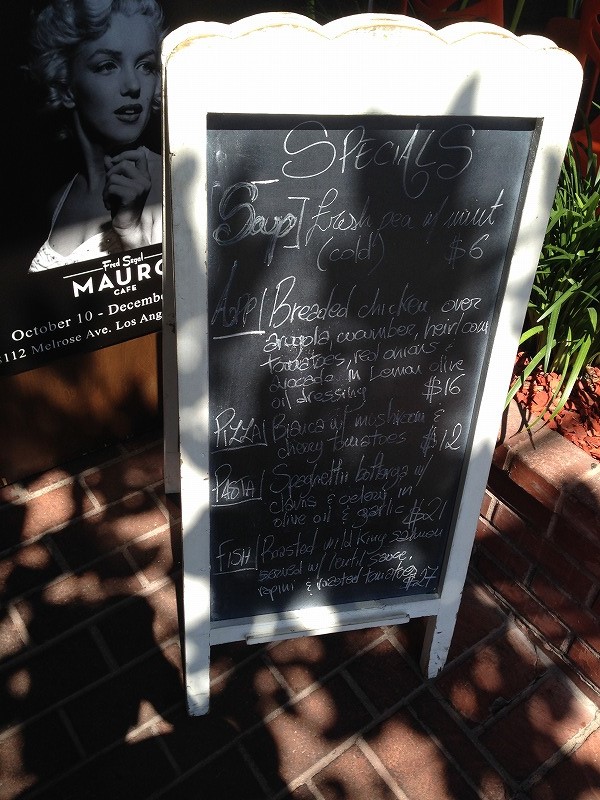 Fred Segal
MAURO
CAFE
October 10 - Decembe
8112 Melrose Ave. Los Ang
SPECIALS
[Soup] fresh pea w/ mint
(cold) $6
App/ Breaded chicken over
arugola, cucumber, heirloom
tomatoes, red onions &
avocado in Lemon olive
oil dressing $16
PIZZA/ Bianca w/ mushroom &
cherry tomatoes $12
PASTA/ Spaghetti bottarga w/
clams & celery in
olive oil & garlic $21
FISH/ Roasted wild King salmon
served w/ lentil sauce,
rapini & roasted tomatoes $27